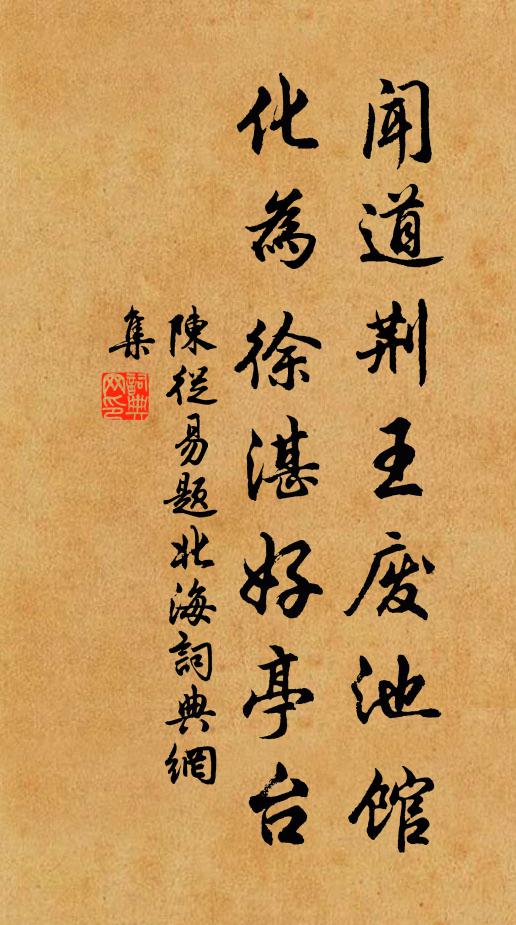 闻道荆王废池馆
化為徐湛好亭台
陳從易题北海詞典網
集
詞典网印